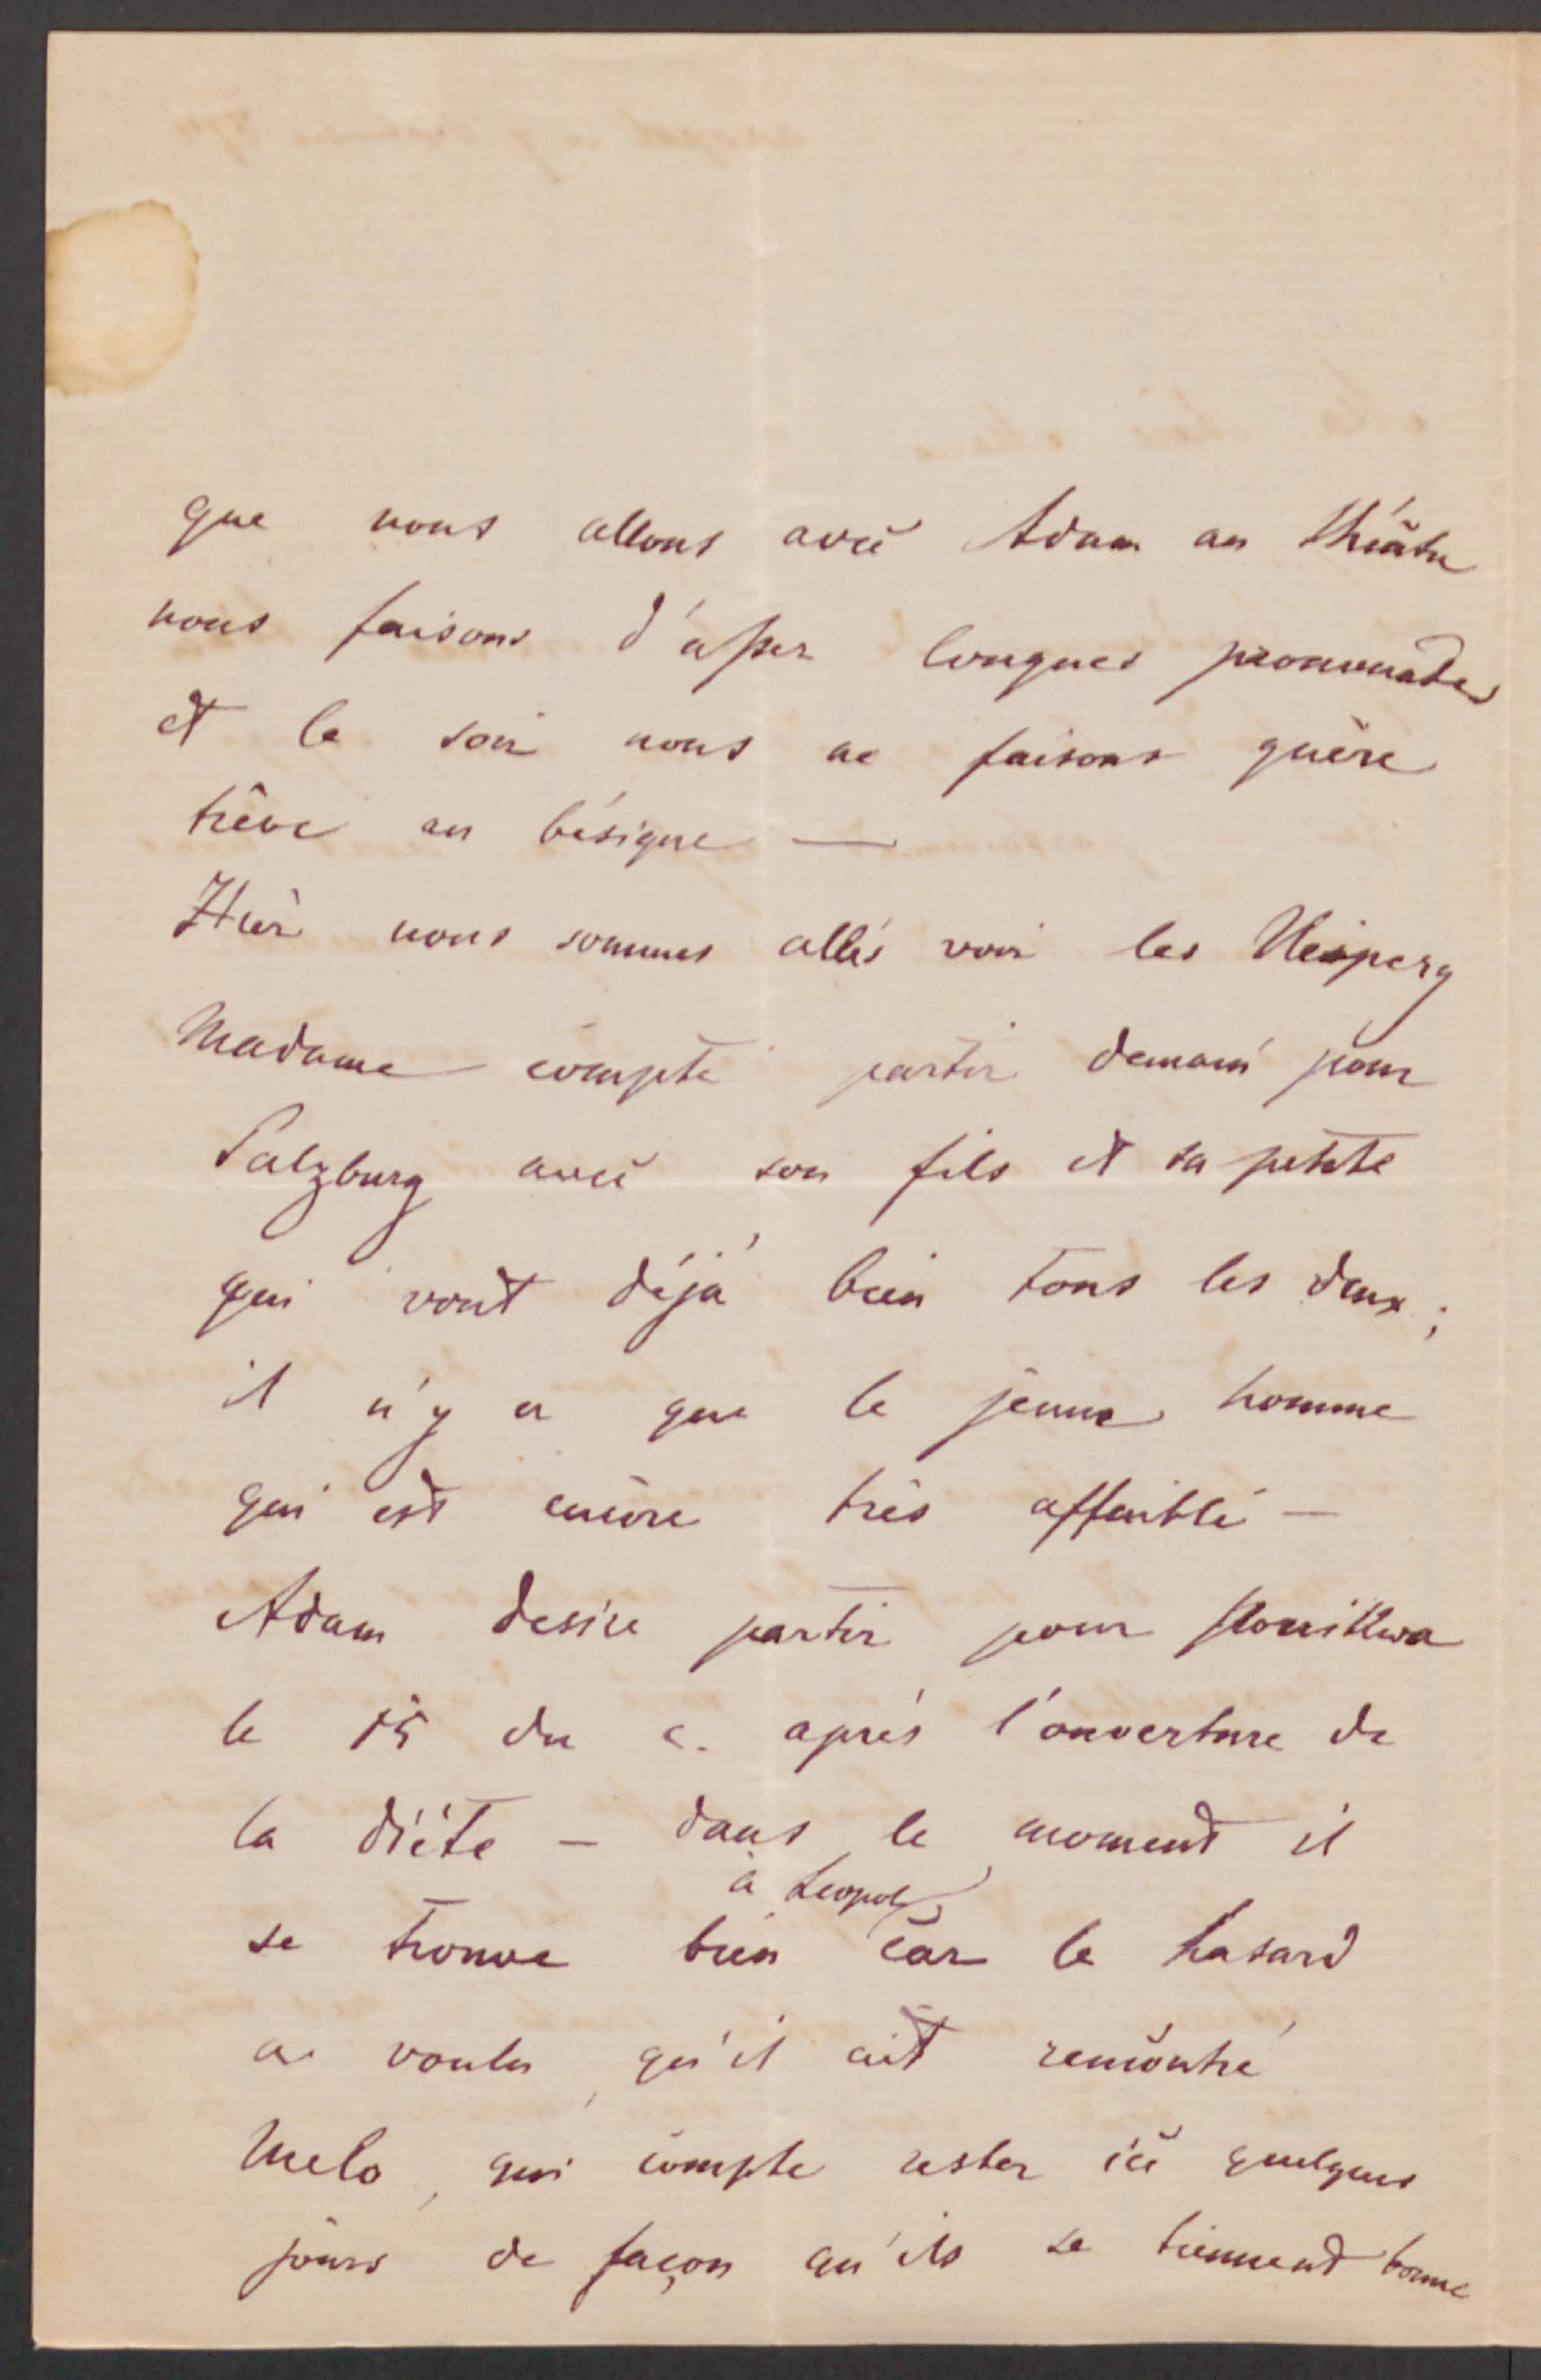 que nous allons avec Adam au théâtre
nous faisons d'assez longues promenades
et le soir nous ne faisons guère
trève au bésigue —
Hier nous sommes allés voir les Neipperg
Madame compte partir demain pour
Salzburg avec son fils et sa petite
qui vont déjà bien tous les deux;
il n'y a que le jeune homme
qui est encore très affaibli —
Adam desire partir pour
le 15 du c. après l'ouverture de
la diète — dans le moment il
à Leopol
se trouve bien car le hasard
a voulu, qu'il ait rencontré
Melo, qui compte rester ici quelques
jours de façon qu'ils se tiennent bonne